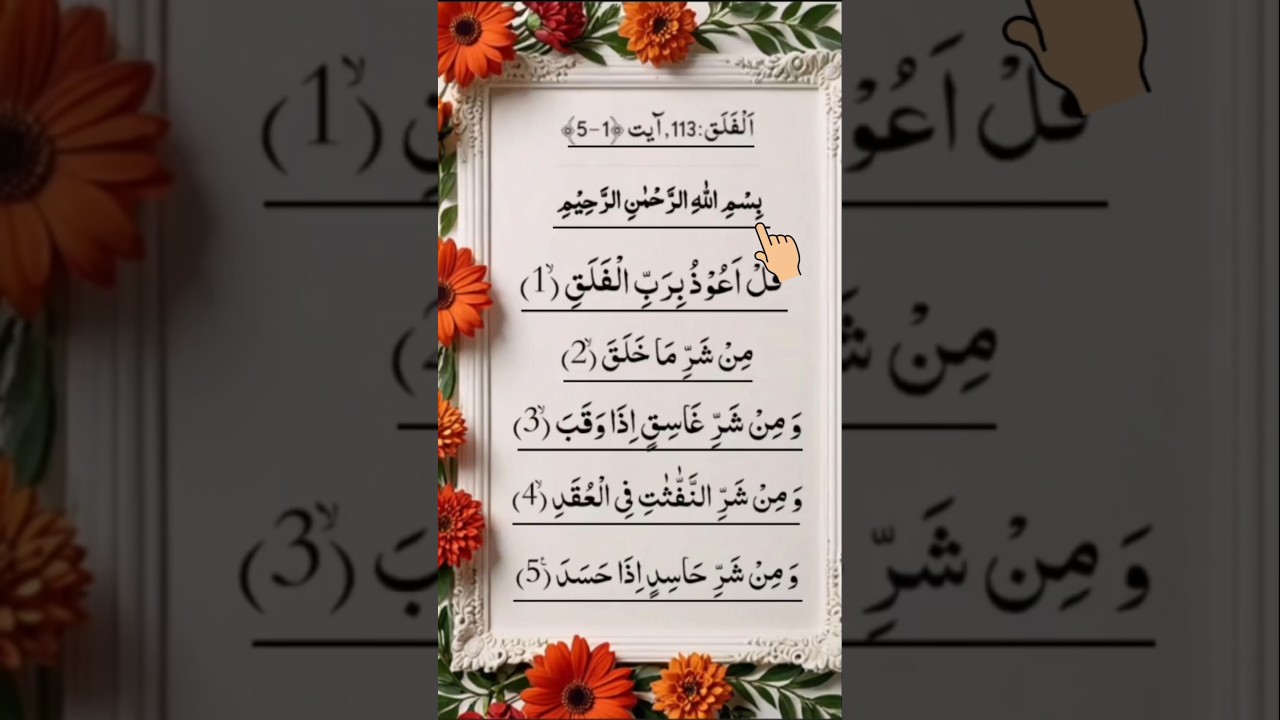 اَلْفَلَق:113, آیت ﴿1-5﴾
بِسْمِ اللّٰهِ الرَّحْمٰنِ الرَّحِیْمِ
قُلْ اَعُوْذُ بِرَبِّ الْفَلَقِ (1ۙ)
مِنْ شَرِّ مَا خَلَقَ (2ۙ)
وَ مِنْ شَرِّ غَاسِقٍ اِذَا وَقَبَ (3ۙ)
وَ مِنْ شَرِّ النَّفّٰثٰتِ فِی الْعُقَدِ (4ۙ)
وَ مِنْ شَرِّ حَاسِدٍ اِذَا حَسَدَ (5۠)